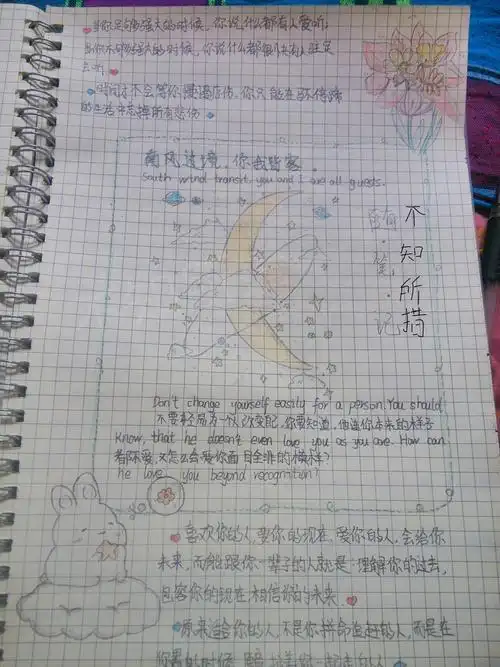 当你足够强大的时候, 你说什么都有人爱听,
当你不够强大的时候, 你说什么都很少有人驻足
去听
时间才不会等你慢慢疗伤, 你只能在
的生活中忘掉所有悲伤
南风过境, 你我皆客.
South wind transit, you and I are all guests.
不知所措
随·笔·记
Don't change yourself easily for a person. You should
不要轻易为一个人改变自己, 你要知道, 他连你本来的样子
know, that he doesn't even love you as you are. How can
都不爱, 又怎么会爱你面目全非的模样?
he love you beyond recognition?
喜欢你的人, 要你的现在, 爱你的人, 会给你
未来, 而能跟你一辈子的人就是: 理解你的过去,
包容你的现在相信你的未来.
原来留给你的人, 不是你拼命追赶的人, 而是在
你累的时候